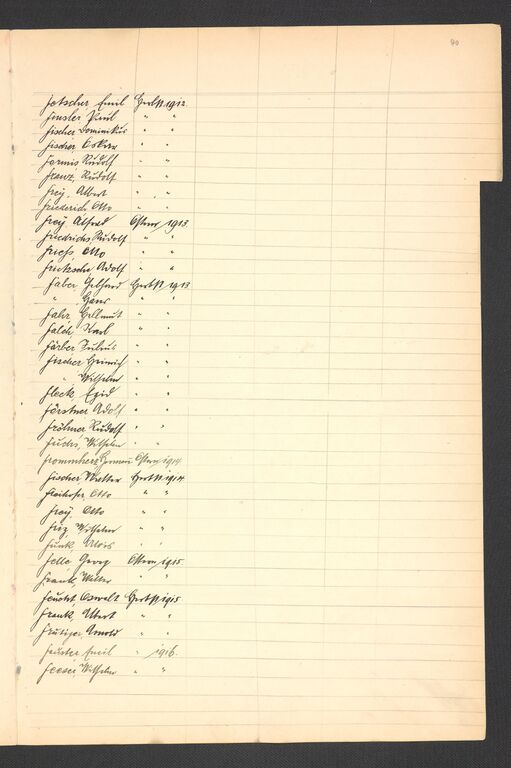 90
Fetscher, Emil Herbst 1912.
Finsler Paul " "
Fischer Dominikus " "
Fischer Oskar " "
Formis Rudolf " "
Franz, Rudolf " "
Frey, Albert " "
Friederich Otto " "
Frey, Alfred Ostern 1913.
Friedrichs Rudolf " "
Friess, Otto " "
Fritzsche, Adolf " "
Faber Gebhard Herbst 1913
" Hans " "
Fahr Hellmut " "
Falch Karl " "
Färber Julius " "
Fischer Heinrich " "
" Wilhelm " "
Fleck, Egid " "
Förstner Adolf " "
Fröhner Rudolf " "
Fuchs, Wilhelm " "
Frommherz Hermann Ostern 1914.
Fischer Walter Herbst 1914.
Freihofer Otto " "
Frey Otto " "
Friz, Wilhelm " "
Funk, Alois " "
Felle, Georg Ostern 1915.
Frank, Walter " "
Feucht, Oswalt Herbst 1915
Frank, Albert " "
Frutiger, Arnold " "
Fauster Emil " 1916.
Feeser, Wilhelm " "